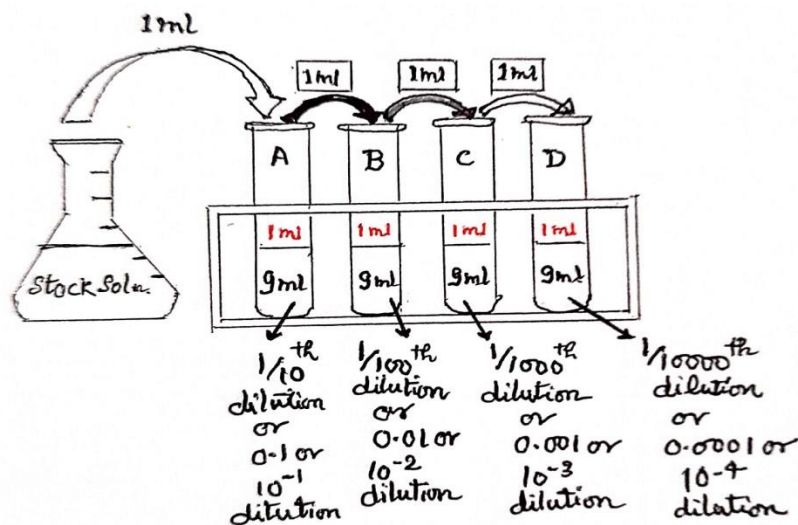 1ml
1ml
1ml
1ml
A
B
C
D
1ml
1ml
1ml
1ml
Stock Soln.
9ml
9ml
9ml
9ml
1/10th
dilution
or
0.1 or
10-1
dilution
1/100th
dilution
or
0.01 or
10-2
dilution
1/1000th
dilution
or
0.001 or
10-3
dilution
1/10000th
dilution
or
0.0001 or
10-4
dilution